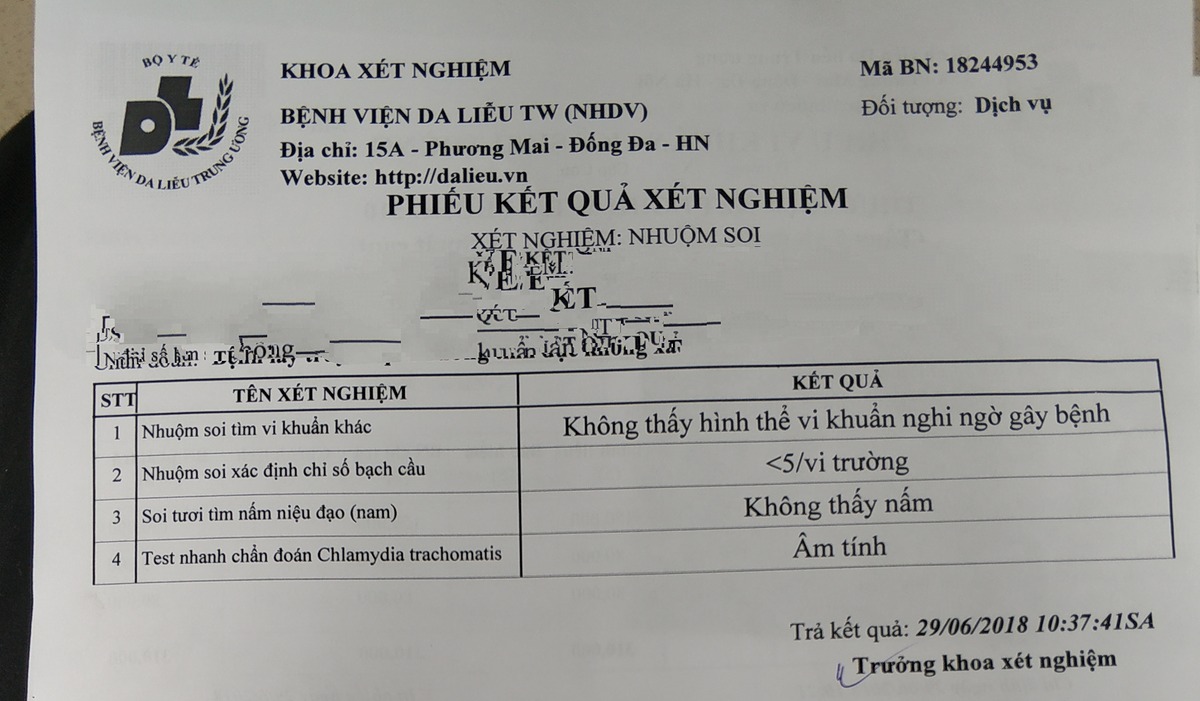 BỘ Y TẾ
BỆNH VIỆN DA LIỄU TRUNG ƯƠNG
KHOA XÉT NGHIỆM
BỆNH VIỆN DA LIỄU TW (NHDV)
Địa chỉ: 15A - Phương Mai - Đống Đa - HN
Website: http://dalieu.vn
Mã BN: 18244953
Đối tượng: Dịch vụ
PHIẾU KẾT QUẢ XÉT NGHIỆM
XÉT NGHIỆM: NHUỘM SOI
STT TÊN XÉT NGHIỆM KẾT QUẢ
1 Nhuộm soi tìm vi khuẩn khác Không thấy hình thể vi khuẩn nghi ngờ gây bệnh
2 Nhuộm soi xác định chỉ số bạch cầu <5/vi trường
3 Soi tươi tìm nấm niệu đạo (nam) Không thấy nấm
4 Test nhanh chẩn đoán Chlamydia trachomatis Âm tính
Trả kết quả: 29/06/2018 10:37:41SA
Trưởng khoa xét nghiệm